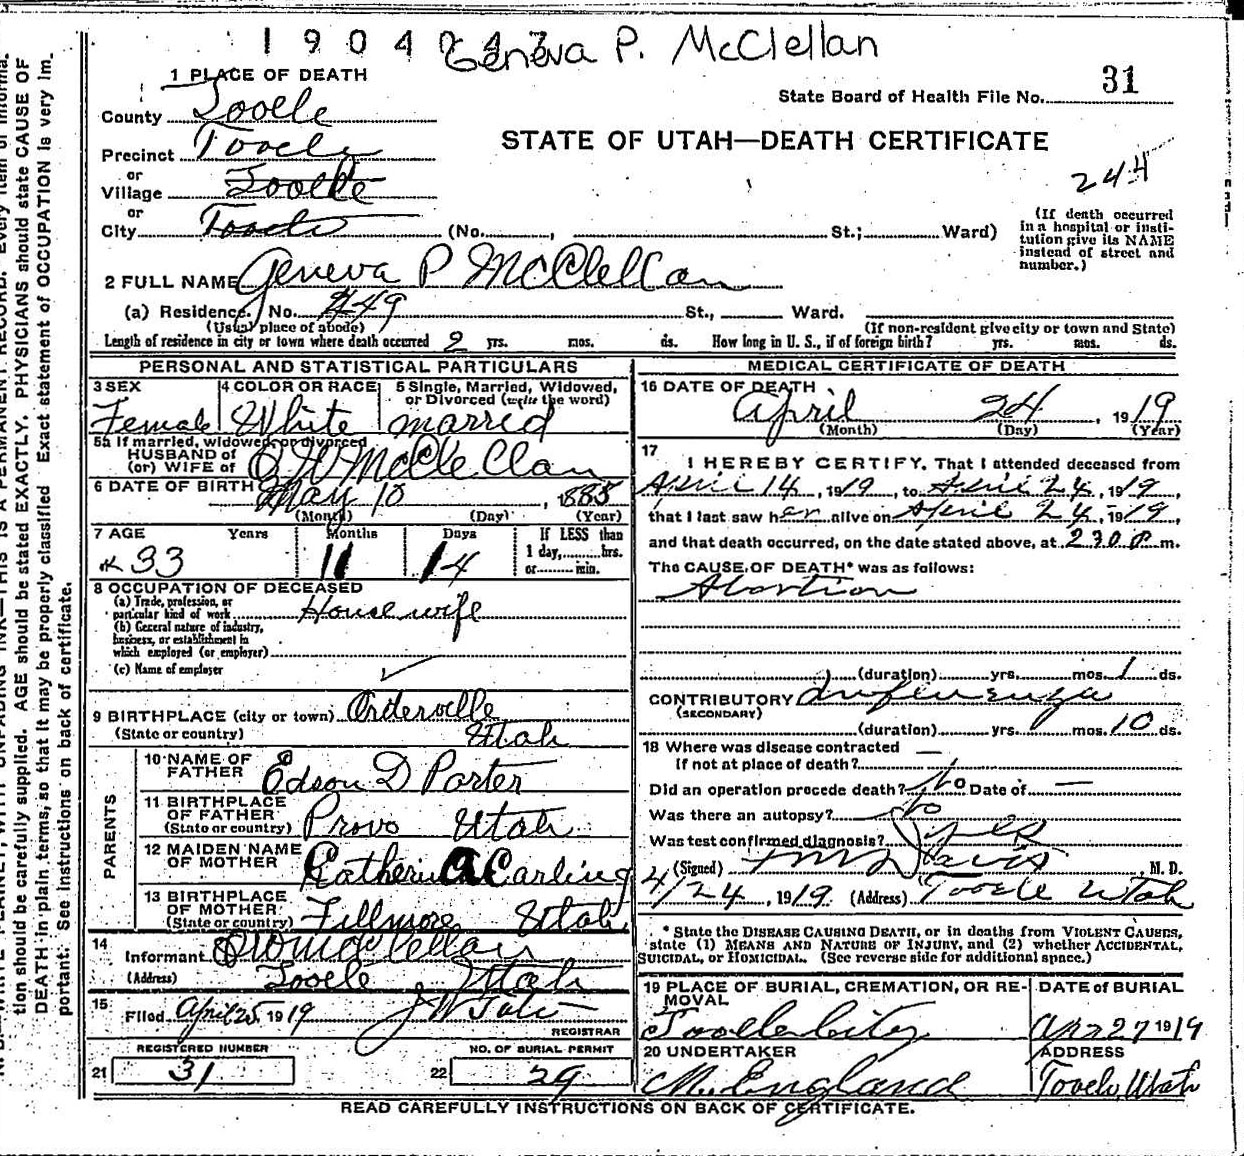 1904047
Geneva P. McClellan
1 PLACE OF DEATH
31
State Board of Health File No.
County Tooele
STATE OF UTAH—DEATH CERTIFICATE
Precinct Tooele
or
Village Tooele
244
or
City Tooele (No. , St.; Ward)
(If death occurred in a hospital or institution give its NAME instead of street and number.)
2 FULL NAME Geneva P McClellan
(a) Residence. No. 449 St., Ward.
(Usual place of abode) (If non-resident give city or town and State)
Length of residence in city or town where death occurred 2 yrs. mos. ds. How long in U. S., if of foreign birth? yrs. mos. ds.
PERSONAL AND STATISTICAL PARTICULARS
3 SEX Female
4 COLOR OR RACE White
5 Single, Married, Widowed, or Divorced (write the word) married
5a If married, widowed, or divorced
HUSBAND of
(or) WIFE of McClellan
6 DATE OF BIRTH May 10, 1885
(Month) (Day) (Year)
7 AGE Years 33 Months 11 Days 14 If LESS than 1 day, hrs. or min.
8 OCCUPATION OF DECEASED
(a) Trade, profession, or particular kind of work House wife
(b) General nature of industry, business, or establishment in which employed (or employer)
(c) Name of employer
9 BIRTHPLACE (city or town) Orderville
(State or country) Utah
PARENTS
10 NAME OF FATHER Edson D Porter
11 BIRTHPLACE OF FATHER (State or country) Provo Utah
12 MAIDEN NAME OF MOTHER Catherine Carling
13 BIRTHPLACE OF MOTHER (State or country) Fillmore Utah
14 Informant McClellan
(Address) Tooele Utah
15 Filed April 25 1919
REGISTRAR
REGISTERED NUMBER
21 31
NO. OF BURIAL PERMIT
22 29
MEDICAL CERTIFICATE OF DEATH
16 DATE OF DEATH
April 24, 1919
(Month) (Day) (Year)
17
I HEREBY CERTIFY, That I attended deceased from
April 14, 1919, to April 24, 1919,
that I last saw her alive on April 24, 1919,
and that death occurred, on the date stated above, at 230 P m.
The CAUSE OF DEATH* was as follows:
Abortion
(duration) yrs. mos. 1 ds.
CONTRIBUTORY Influenza
(SECONDARY)
(duration) yrs. mos. 10 ds.
18 Where was disease contracted —
If not at place of death?
Did an operation precede death? No Date of —
Was there an autopsy? No
Was test confirmed diagnosis?
(Signed) Davis M. D.
4/24, 1919. (Address) Tooele Utah
* State the DISEASE CAUSING DEATH, or in deaths from VIOLENT CAUSES, state (1) MEANS AND NATURE OF INJURY, and (2) whether ACCIDENTAL, SUICIDAL, or HOMICIDAL. (See reverse side for additional space.)
19 PLACE OF BURIAL, CREMATION, OR REMOVAL
Tooele City
DATE of BURIAL
Apr 27 1919
20 UNDERTAKER
M. England
ADDRESS
Tooele, Utah
READ CAREFULLY INSTRUCTIONS ON BACK OF CERTIFICATE.
tion should be carefully supplied. AGE should be stated EXACTLY. PHYSICIANS should state CAUSE OF
DEATH in plain terms, so that it may be properly classified Exact statement of OCCUPATION is very im-
portant. See instructions on back of certificate.